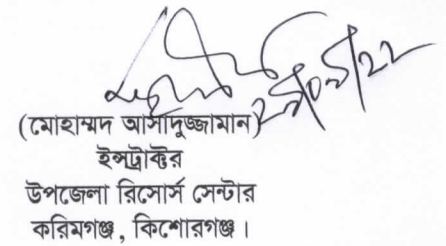 (মোহাম্মদ আসাদুজ্জামান)
ইন্সট্রাক্টর
উপজেলা রিসোর্স সেন্টার
করিমগঞ্জ, কিশোরগঞ্জ।